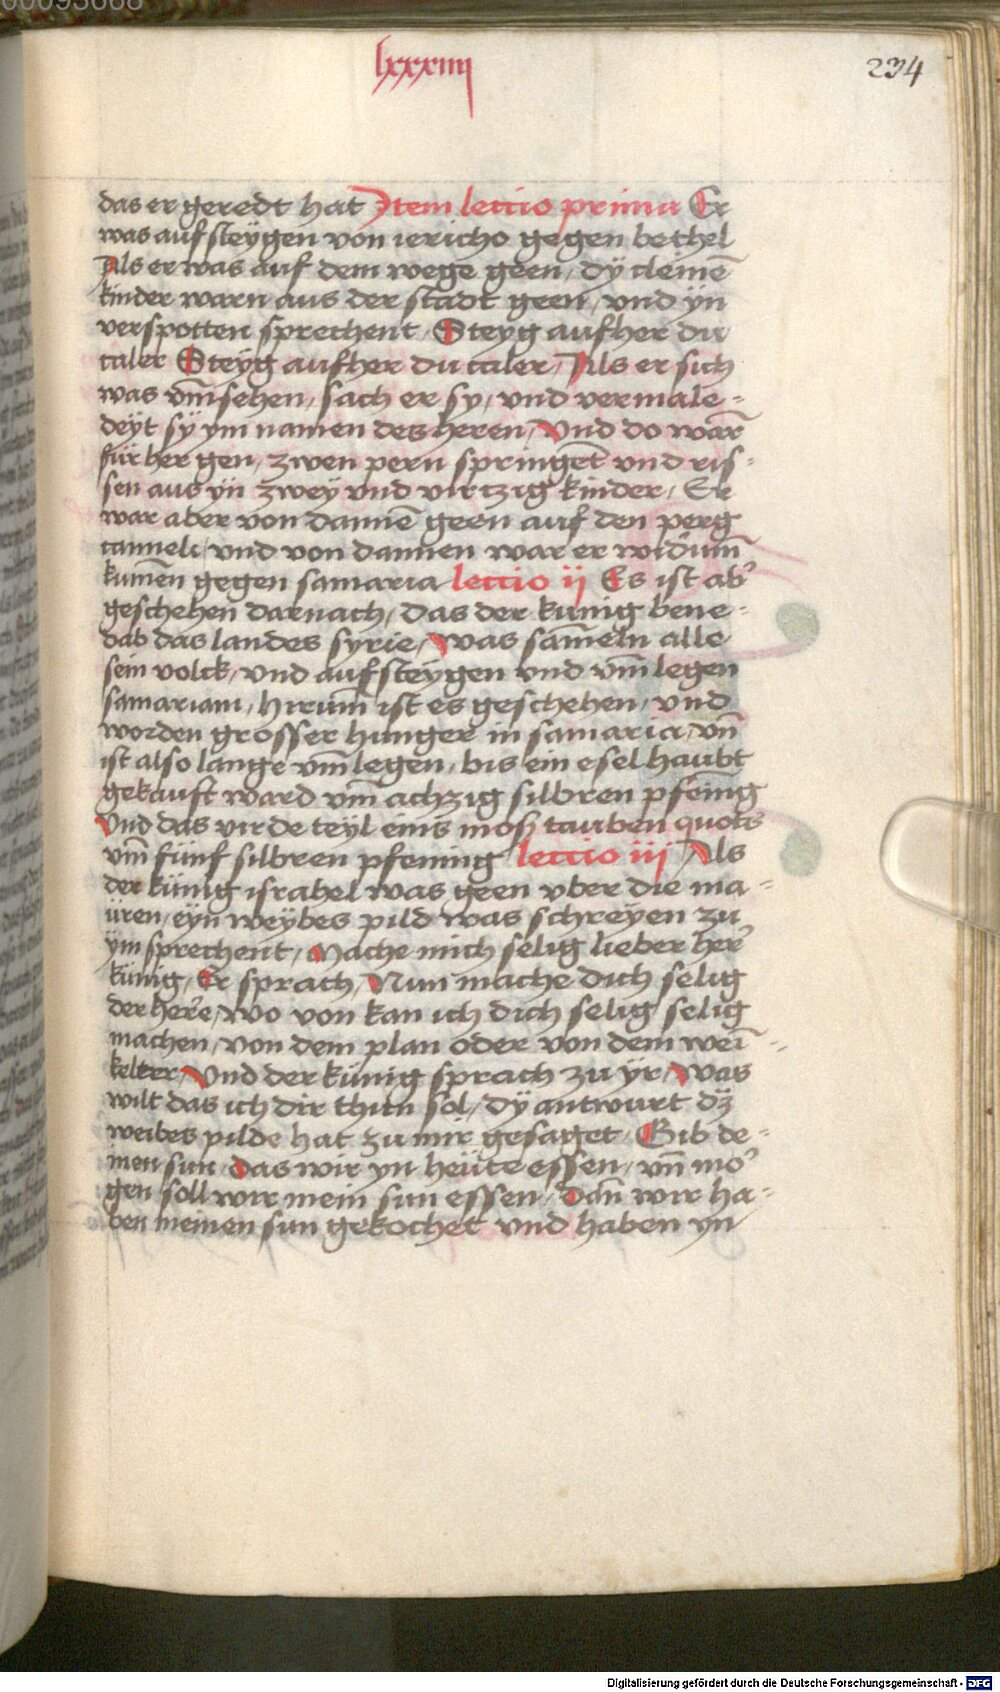 00093668
lxxxiiii
234
das er geredt hat Item lectio prima Er
was aufsteygen von iericho gegen bethel
Als er was auf dem wege geen / dÿ cleinē
kinder warn aus der stadt geen / vnd ÿn
verspotten sprechent / Steyg aufher du
caler Steÿg aufher du caler / Als er sich
was vm̄sehen / sach er sy / vnd vermale=
deÿt sÿ ym namen des heren / Vnd do warn̄
für her gen / zwen pern springet vnd ris=
sen aus ÿn zweÿ vnd virtzig kinder / Er
war aber von dannē geen auf den perg
carmeli / vnd von dannen war er widum̄
kumēn gegen samaria lectio ij Es ist ab̛
geschehen darnach / das der kunig bene=
dab das landes syrie / was sām̄eln alle
sein volck / vnd aufsteÿgen vnd vm̄legen
samariam / hirum̄ ist es geschehen / vnd
worden grosser hunger in samaria / vn̄
ist also lange vm̄legen / bis ein esel haubt
gekauft ward vm̄ achzig silbren pfenīng
Vnd das virde teÿl einis moß tauben quots
vm̄ fünf silbren pfening lectio iij Als
der künig israhel was geen vber die ma=
üren / eÿn weÿbes pild was schreÿen zu
ÿm sprechent / Mache mich selig lieber her̛
künig / Er sprach / Nun mache dich selig
der her̛e / wo von kan ich dich selig selig
machen / von dem plan oder von dem wei=
kelter / Vnd der künig sprach zu ÿr / was
wilt das ich dir thun sol / dÿ antwurt dz
weibes pilde hat zu mir gesaget / Gib de=
inen sun / das wir yn heüte essen / vn̄ mơ
gen soll wir mein sun essen / Dan̄ wir ha=
ben meinen sun gekochet vnd haben yn
Digitalisierung gefördert durch die Deutsche Forschungsgemeinschaft - DFG